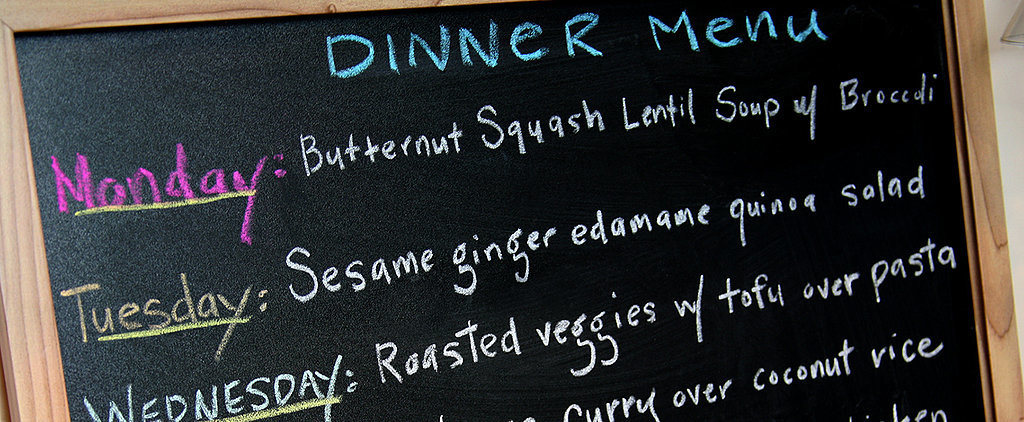 DINNER Menu
Monday: Butternut Squash Lentil Soup w/ Broccoli
Tuesday: Sesame ginger edamame quinoa salad
WEDNESDAY: Roasted veggies w/ tofu over pasta
curry over coconut rice